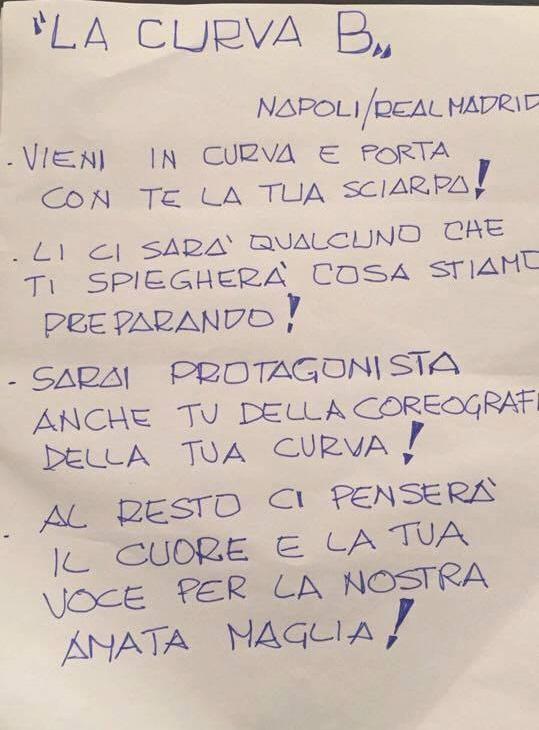 "LA CURVA B"
NAPOLI/REAL MADRID
- VIENI IN CURVA E PORTA
CON TE LA TUA SCIARPA!
- LI CI SARA' QUALCUNO CHE
TI SPIEGHERA' COSA STIAMO
PREPARANDO!
- SARAI PROTAGONISTA
ANCHE TU DELLA COREOGRAFI
DELLA TUA CURVA!
- AL RESTO CI PENSERA'
IL CUORE E LA TUA
VOCE PER LA NOSTRA
AMATA MAGLIA!